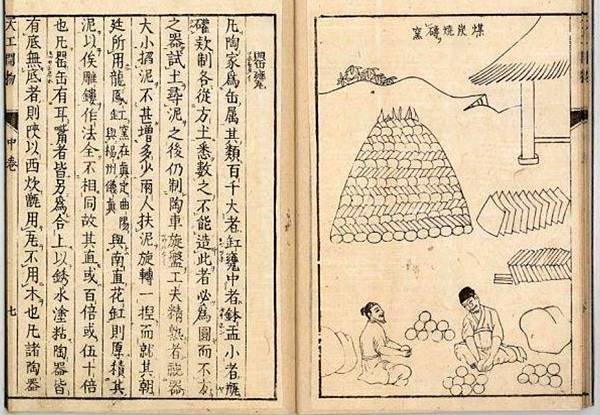 煤炭燒磚窯
凡陶家爲缶屬其類百千大者缸甕中者鉢盂小者瓶
礶欵制各從方土悉數之不能造此者必爲圓而不方
之器試土尋泥之後仍制陶車旋盤工夫精熟者視器
大小掐泥不甚增多少兩人扶泥旋轉一捏而就其朝
廷所用龍鳳缸窯在真定曲陽與揚州儀真與南直花缸則厚積其
泥以俟雕鏤作法全不相同故其直或百倍或伍十倍
也凡罌缶有耳嘴者皆另爲合上以銹水塗粘陶器皆
有底無底者則陝以西炊甑用瓦不用木也凡諸陶器
天工開物 中卷 七